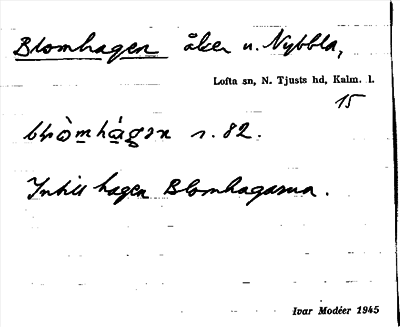 Blomhagen åker u. Nybbla,
Lofta sn, N. Tjusts hd, Kalm. l.
15
s. 82.
Intill hagen Blomhagarna.
Ivar Modéer 1945